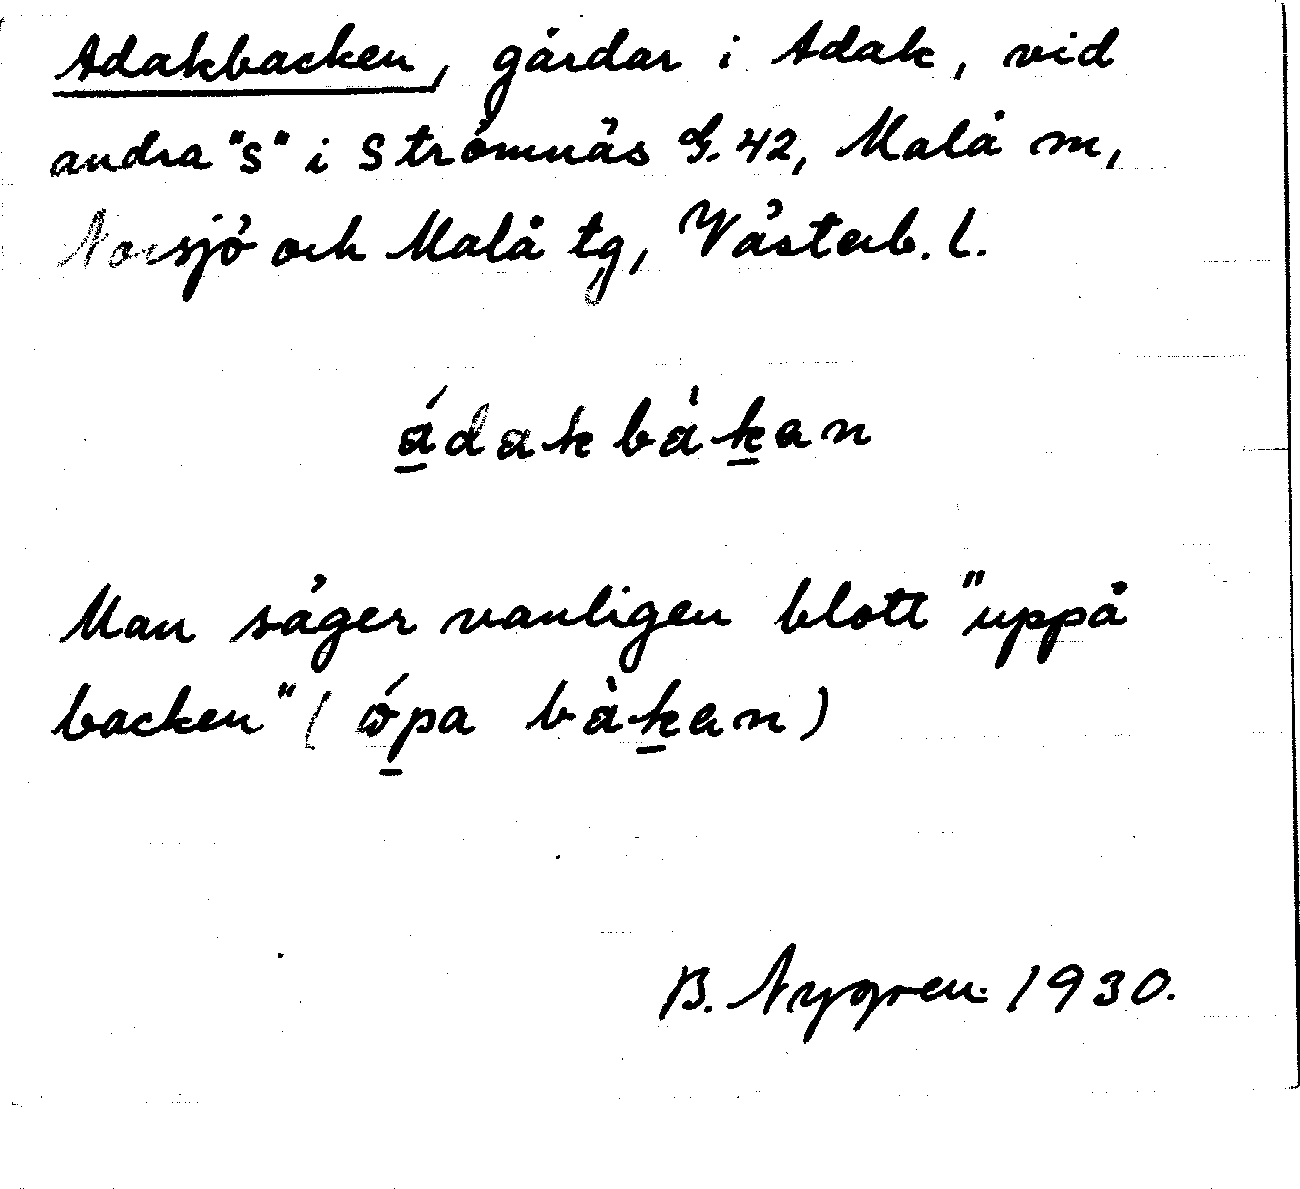 Adakbacken, gårdar i Adak, vid
andra "s" i Strömnäs G. 42, Malå m,
Norsjö och Malå tg, Västerb. l.
á̱dakbàḵan
Man säger vanligen blott "uppå
backen" (ώ̱pa bàḵan)
B. Nygren 1930.